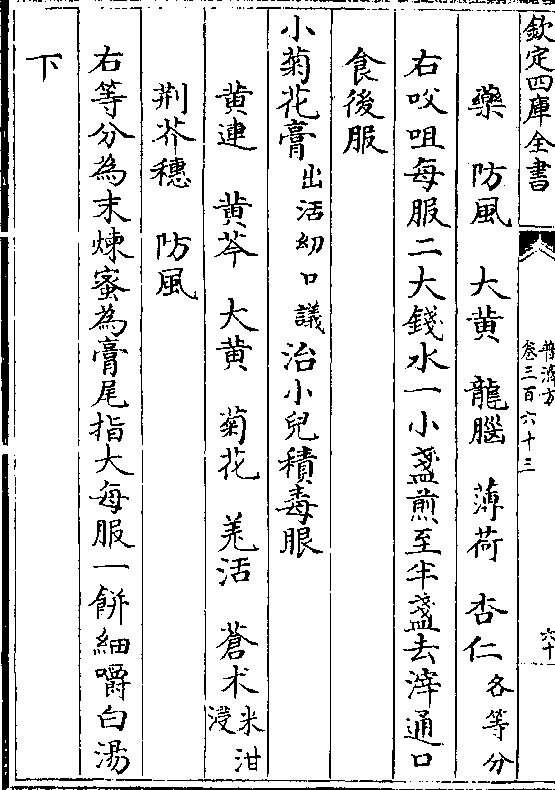 欽定四庫全書
普濟方
卷三百六十三
六十
藥 防風 大黄 龍腦 薄荷 杏仁各等分
右㕮咀每服二大錢水一小盞煎至半盞去滓通口
食後服
小菊花膏出活幼口議治小兒積毒眼
黄連 黄芩 大黄 菊花 羌活 蒼术米泔浸
荆芥穗 防風
右等分為末煉蜜為膏尾指大每服一餅細嚼白湯
下